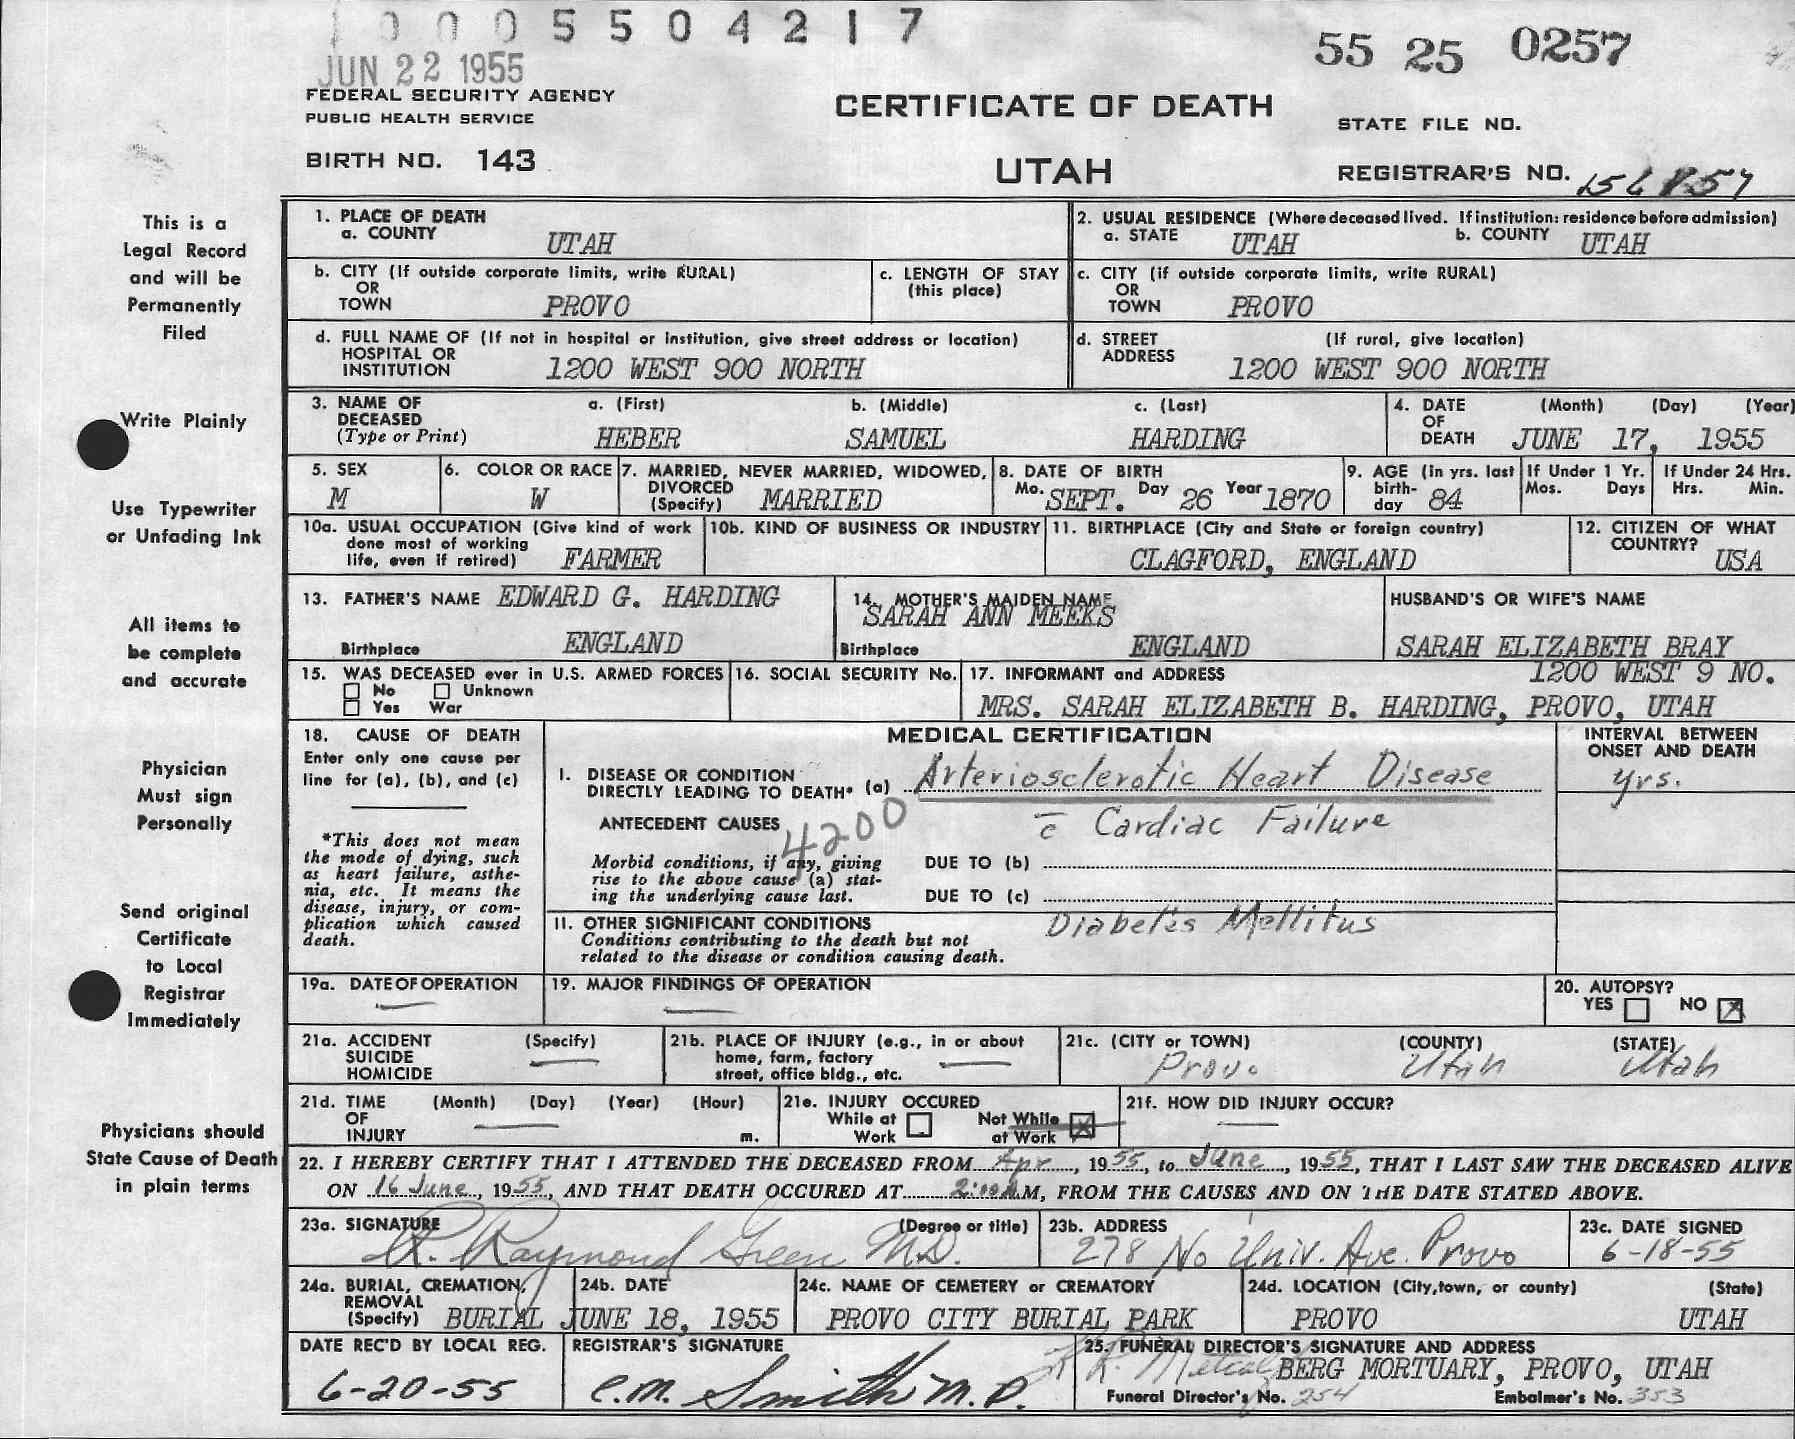 1 0 0 0 5 5 0 4 2 1 7
JUN 22 1955
55 25 0257
FEDERAL SECURITY AGENCY
PUBLIC HEALTH SERVICE
CERTIFICATE OF DEATH
STATE FILE NO.
BIRTH NO. 143
UTAH
REGISTRAR'S NO.
This is a
Legal Record
and will be
Permanently
Filed
Write Plainly
Use Typewriter
or Unfading Ink
All items to
be complete
and accurate
Physician
Must sign
Personally
Send original
Certificate
to Local
Registrar
Immediately
Physicians should
State Cause of Death
in plain terms
1. PLACE OF DEATH
a. COUNTY UTAH
2. USUAL RESIDENCE (Where deceased lived. If institution: residence before admission)
a. STATE UTAH b. COUNTY UTAH
b. CITY (If outside corporate limits, write RURAL)
OR
TOWN PROVO
c. LENGTH OF STAY
(this place)
c. CITY (if outside corporate limits, write RURAL)
OR
TOWN PROVO
d. FULL NAME OF (If not in hospital or institution, give street address or location)
HOSPITAL OR
INSTITUTION 1200 WEST 900 NORTH
d. STREET (If rural, give location)
ADDRESS 1200 WEST 900 NORTH
3. NAME OF a. (First) b. (Middle) c. (Last)
DECEASED
(Type or Print) HEBER SAMUEL HARDING
4. DATE (Month) (Day) (Year)
OF
DEATH JUNE 17, 1955
5. SEX
M
6. COLOR OR RACE
W
7. MARRIED, NEVER MARRIED, WIDOWED,
DIVORCED
(Specify) MARRIED
8. DATE OF BIRTH
Mo. SEPT. Day 26 Year 1870
9. AGE (In yrs. last
birth-
day 84
If Under 1 Yr.
Mos. Days
If Under 24 Hrs.
Hrs. Min.
10a. USUAL OCCUPATION (Give kind of work
done most of working
life, even if retired) FARMER
10b. KIND OF BUSINESS OR INDUSTRY
11. BIRTHPLACE (City and State or foreign country)
CLAGFORD, ENGLAND
12. CITIZEN OF WHAT
COUNTRY?
USA
13. FATHER'S NAME EDWARD G. HARDING
Birthplace ENGLAND
14. MOTHER'S MAIDEN NAME
SARAH ANN MEEKS
Birthplace ENGLAND
HUSBAND'S OR WIFE'S NAME
SARAH ELIZABETH BRAY
15. WAS DECEASED ever in U.S. ARMED FORCES
No Unknown
Yes War
16. SOCIAL SECURITY No.
17. INFORMANT and ADDRESS 1200 WEST 9 NO.
MRS. SARAH ELIZABETH B. HARDING, PROVO, UTAH
18. CAUSE OF DEATH
Enter only one cause per
line for (a), (b), and (c)
*This does not mean
the mode of dying, such
as heart failure, asthe-
nia, etc. It means the
disease, injury, or com-
plication which caused
death.
MEDICAL CERTIFICATION
INTERVAL BETWEEN
ONSET AND DEATH
I. DISEASE OR CONDITION
DIRECTLY LEADING TO DEATH* (a) Arteriosclerotic Heart Disease yrs.
ANTECEDENT CAUSES 4200 c̄ Cardiac Failure
Morbid conditions, if any, giving
rise to the above cause (a) stat-
ing the underlying cause last.
DUE TO (b)
DUE TO (c)
II. OTHER SIGNIFICANT CONDITIONS Diabetes Mellitus
Conditions contributing to the death but not
related to the disease or condition causing death.
19a. DATE OF OPERATION
—
19. MAJOR FINDINGS OF OPERATION
—
20. AUTOPSY?
YES NO X
21a. ACCIDENT (Specify)
SUICIDE —
HOMICIDE
21b. PLACE OF INJURY (e.g., in or about
home, farm, factory
street, office bldg., etc. —
21c. (CITY or TOWN) (COUNTY) (STATE)
Provo Utah Utah
21d. TIME (Month) (Day) (Year) (Hour)
OF —
INJURY m.
21e. INJURY OCCURED
While at Not While
Work at Work X
21f. HOW DID INJURY OCCUR?
—
22. I HEREBY CERTIFY THAT I ATTENDED THE DECEASED FROM Apr, 1955, to June, 1955, THAT I LAST SAW THE DECEASED ALIVE
ON 16 June, 1955, AND THAT DEATH OCCURED AT 2:10 A.M, FROM THE CAUSES AND ON THE DATE STATED ABOVE.
23a. SIGNATURE (Degree or title)
R. Raymond Green M.D.
23b. ADDRESS
278 No Univ. Ave. Provo
23c. DATE SIGNED
6-18-55
24a. BURIAL, CREMATION,
REMOVAL
(Specify) BURIAL
24b. DATE
JUNE 18, 1955
24c. NAME OF CEMETERY or CREMATORY
PROVO CITY BURIAL PARK
24d. LOCATION (City, town, or county) (State)
PROVO UTAH
DATE REC'D BY LOCAL REG.
6-20-55
REGISTRAR'S SIGNATURE
C.M. Smith M.D.
25. FUNERAL DIRECTOR'S SIGNATURE AND ADDRESS
BERG MORTUARY, PROVO, UTAH
Funeral Director's No. 254 Embalmer's No. 353